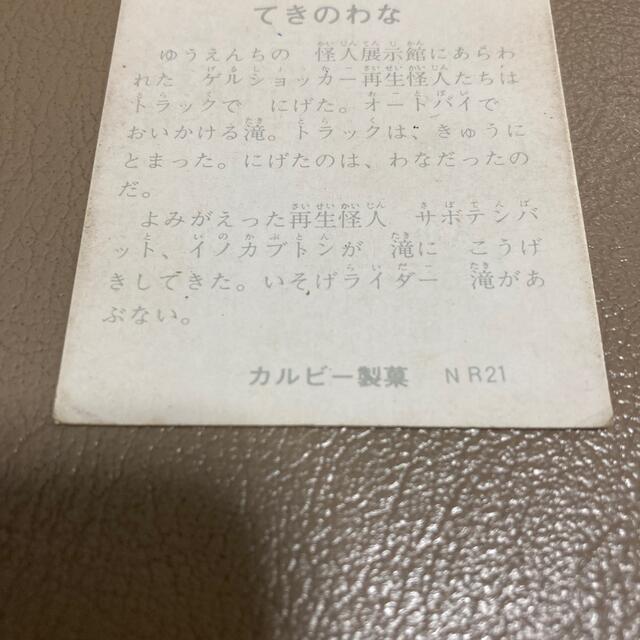 てきのわな
ゆうえんちの 怪人展示館にあらわ
れた ゲルショッカー再生怪人たちは
トラックで にげた。オートバイで
おいかける滝。トラックは、きゅうに
とまった。にげたのは、わなだったの
だ。
よみがえった再生怪人 サボテンバ
ット、イノカブトンが 滝に こうげ
きしてきた。いそげライダー 滝があ
ぶない。
カルビー製菓 NR21